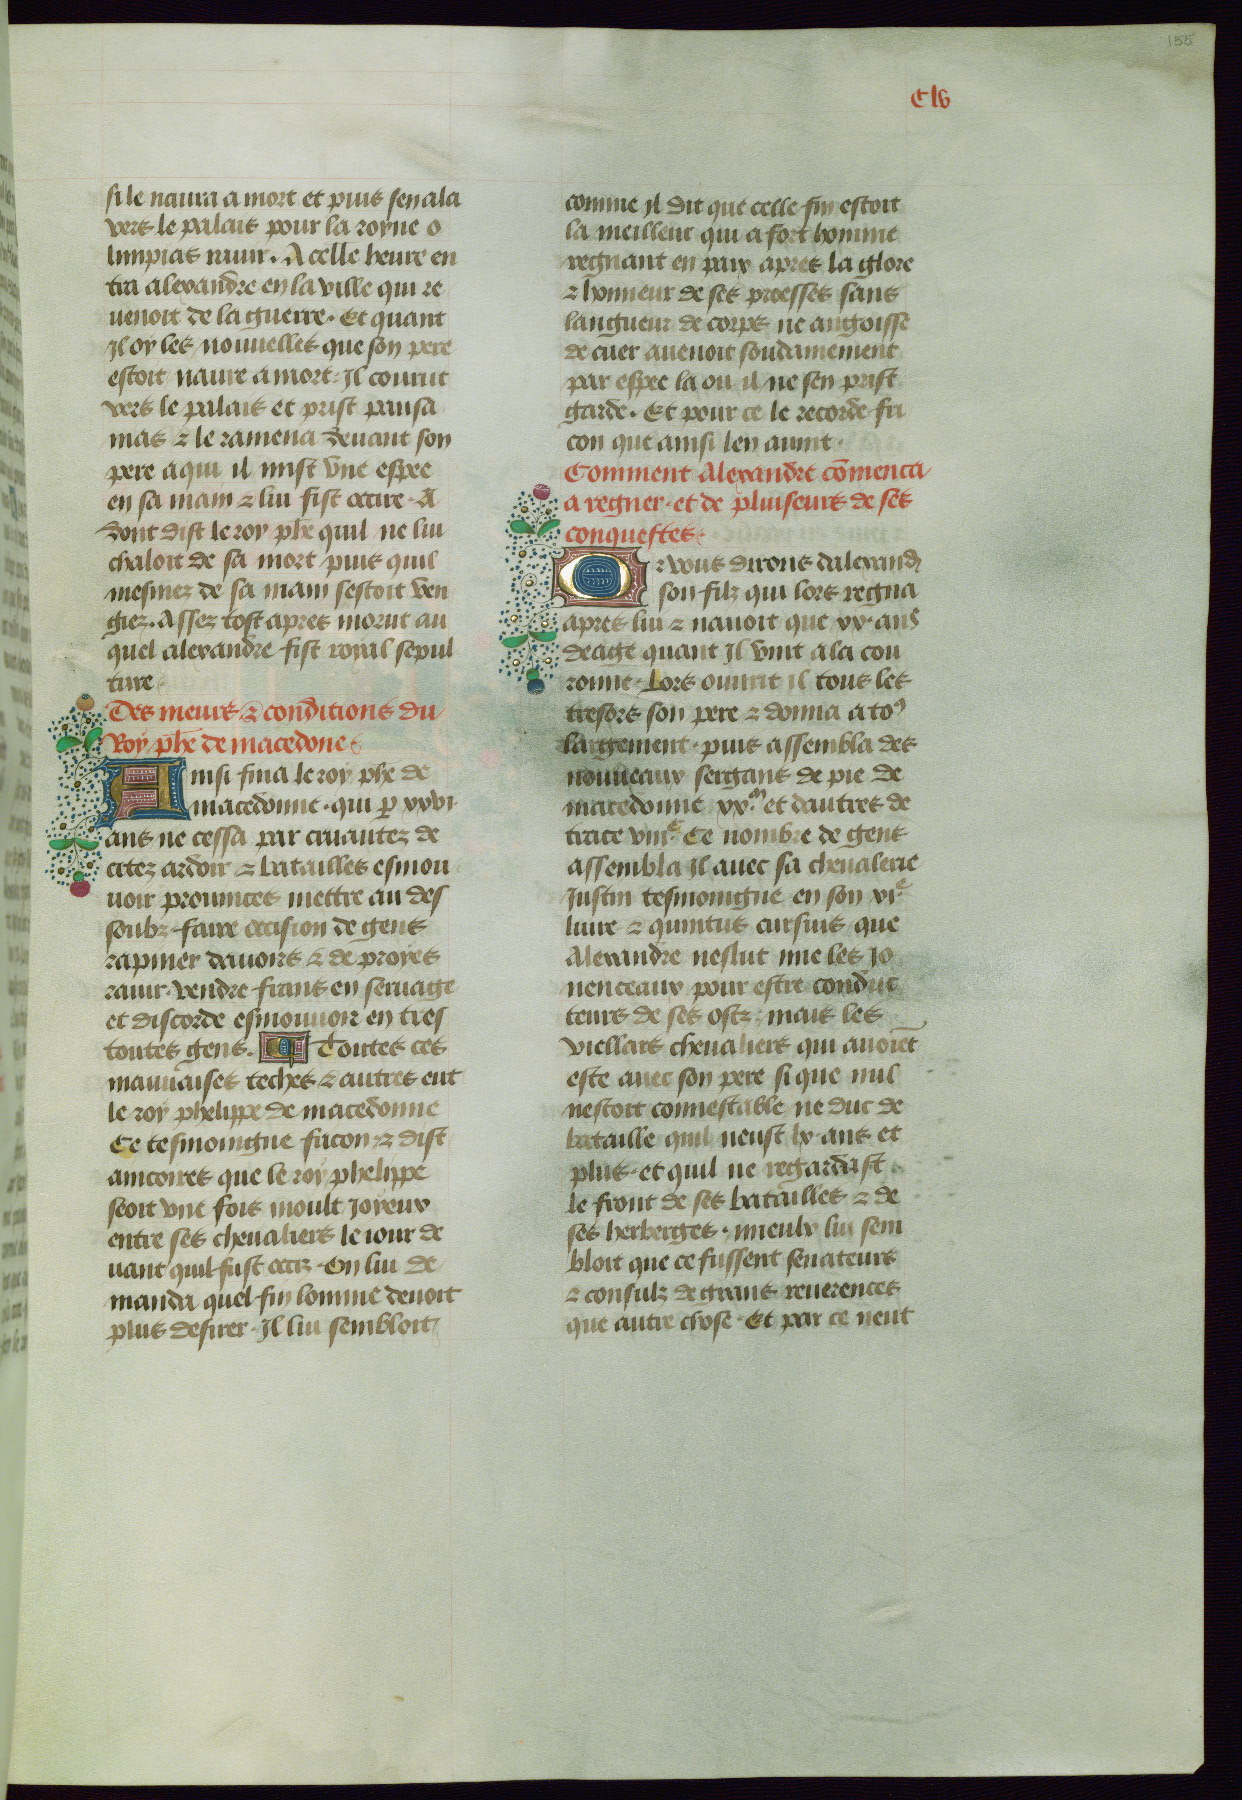 155
Clv
si le naura a mort et puis sen ala
vers le palais pour la royne o
limpias rauir. A celle heure en
tra alexandre en la ville qui re
uenoit de la guerre. Et quant
Il oy les nouuelles que son pere
estoit naure a mort. Il courut
vers le palais et prist pausa
nias ⁊ le ramena deuant son
pere a qui il mist vne espee
en sa main ⁊ lui fist occire. A
dont dist le roy phe quil ne lui
chaloit de sa mort puis quil
mesmez de sa main sestoit ven
giez. Assez tost apres morut au
quel alexandre fist royal sepul
ture
Des meurs ⁊ conditions du
Roy phe de macedone
Ainsi fina le roy phe de
macedonne. qui p xxvi.
ans ne cessa par cruautez de
citez ardoir ⁊ batailles esmou
uoir prouinces mettre au des
soubz faire occision de gens
rapiner dauoirs ⁊ de proyes
rauir. vendre frans en seruage
et discorde esmouuoir en tres
toutes gens. Toutes ces
mauuaises teches ⁊ autres eut
le roy phelippe de macedonne
Ce tesmoingne facon ⁊ dist
aincoires que le roy phelippe
seoit vne fois moult Joyeux
entre ses cheualiers le iour de
uant quil fust occiz. On lui de
manda quel fin homme deuoit
plus desirer. Il lui sembloit
comme il dit que celle fin estoit
la meilleur qui a fort homme
regnant en paix apres la glore
⁊ honneur de ses proesses sans
langueur de corps ne angoisse
de cuer auenoit soudainement
par espee la ou il ne sen prist
garde. Et pour ce le recorde fa
con que ainsi len auint.
Comment Alexandre cōmenca
a regner. et de pluiseurs de ses
conquestes.
Or vous dirons dalexand
son filz qui lors regna
apres lui ⁊ nauoit que xx. ans
deage quant Il vint a la cou
ronne. Lors ouurit il tous les
tresors son pere ⁊ donna a to9
largement. puis assembla des
nouueaux sergans de pie de
macedonne xx.m et dautres de
trace viii.c Ce nombre de gens
assembla il auec sa cheualerie
Justin tesmoingne en son xi.e
liure ⁊ quintus cursius que
Alexandre neslut mie les Jo
uenceaux pour estre conduc
teurs de ses ostz. mais les
viellars cheualiers qui auoiēt
este auec son pere si que nul
nestoit connestable ne duc de
bataille quil neust lx. ans et
plus. et quil ne regardast
le front de ses batailles ⁊ de
ses herberges. mieulx lui sem
bloit que ce fussent senateurs
⁊ consulz de grans reuerences
que autre chose. Et par ce neut